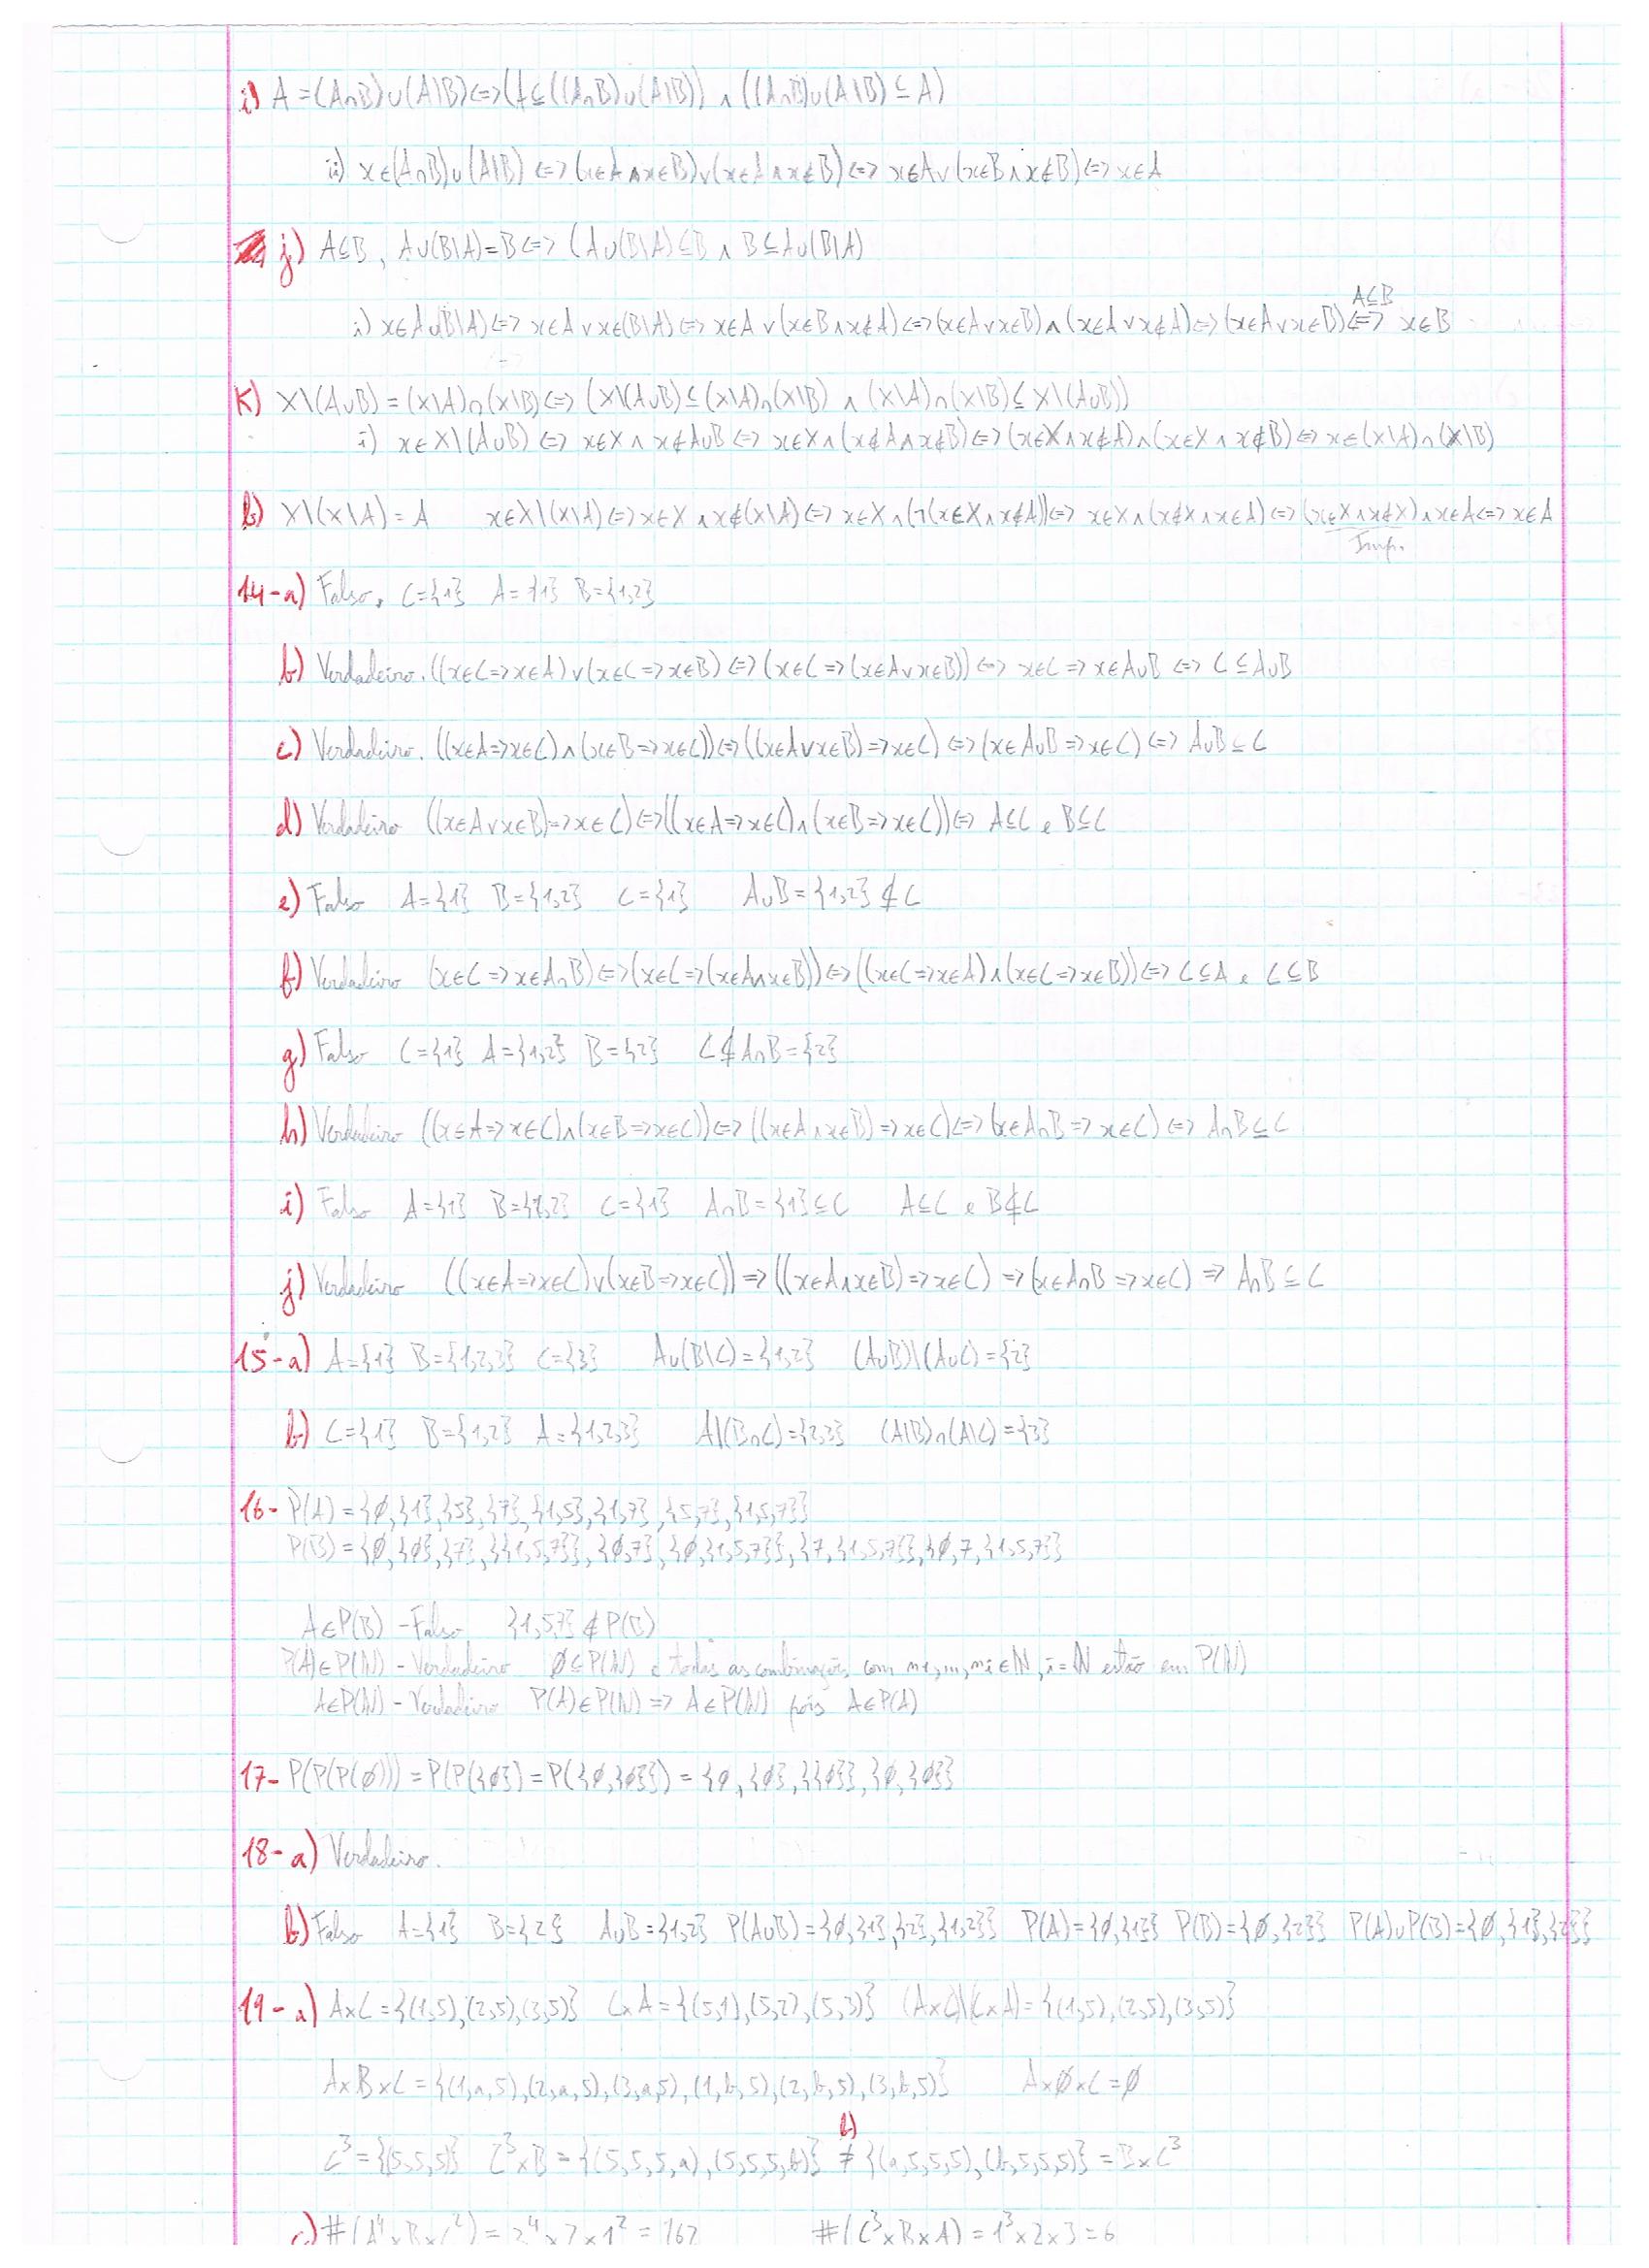 i) A = (A∩B)∪(A\B) <=> (A ⊆ ((A∩B)∪(A\B)) ∧ ((A∩B)∪(A\B) ⊆ A)
ii) x∈(A∩B)∪(A\B) <=> (x∈A ∧ x∈B)∨(x∈A ∧ x∉B) <=> x∈A∨(x∈B ∧ x∉B) <=> x∈A
j) A⊆B, A∪(B\A)=B <=> (A∪(B\A) ⊆ B ∧ B ⊆ A∪(B\A)
A⊆B
i) x∈A∪(B\A) <=> x∈A ∨ x∈(B\A) <=> x∈A ∨ (x∈B ∧ x∉A) <=> (x∈A ∨ x∈B) ∧ (x∈A ∨ x∉A) <=> (x∈A ∨ x∈B) <=> x∈B
K) X\(A∪B) = (X\A)∩(X\B) <=> (X\(A∪B) ⊆ (X\A)∩(X\B) ∧ (X\A)∩(X\B) ⊆ X\(A∪B))
i) x∈X\(A∪B) <=> x∈X ∧ x∉A∪B <=> x∈X ∧ (x∉A ∧ x∉B) <=> (x∈X ∧ x∉A) ∧ (x∈X ∧ x∉B) <=> x∈(X\A)∩(X\B)
X\(X\A) = A x∈X\(X\A) <=> x∈X ∧ x∉(X\A) <=> x∈X ∧ (¬(x∈X ∧ x∉A)) <=> x∈X ∧ (x∉X ∧ x∈A) <=> (x∈X ∧ x∉X) ∧ x∈A <=> x∈A
Imp.
14-a) Falso. C={1} A={1} B={1,2}
b) Verdadeiro. ((x∈C => x∈A) ∨ (x∈C => x∈B) <=> (x∈C => (x∈A ∨ x∈B)) <=> x∈C => x∈A∪B <=> C ⊆ A∪B
c) Verdadeiro. ((x∈A => x∈C) ∧ (x∈B => x∈C)) <=> ((x∈A ∨ x∈B) => x∈C) <=> (x∈A∪B => x∈C) <=> A∪B ⊆ C
d) Verdadeiro ((x∈A ∨ x∈B) => x∈C) <=> ((x∈A => x∈C) ∧ (x∈B => x∈C)) <=> A⊆C e B⊆C
e) Falso A={1} B={1,2} C={1} A∪B={1,2} ⊄ C
f) Verdadeiro (x∈C => x∈A∩B) <=> (x∈C => (x∈A ∧ x∈B)) <=> ((x∈C => x∈A) ∧ (x∈C => x∈B)) <=> C⊆A e C⊆B
g) Falso C={1} A={1,2} B={2} C ⊄ A∩B={2}
h) Verdadeiro ((x∈A => x∈C) ∧ (x∈B => x∈C)) <=> ((x∈A ∧ x∈B) => x∈C) <=> (x∈A∩B => x∈C) <=> A∩B ⊆ C
i) Falso A={1} B={1,2} C={1} A∩B={1} ⊆ C A⊆C e B⊄C
j) Verdadeiro ((x∈A => x∈C) ∨ (x∈B => x∈C)) => ((x∈A ∧ x∈B) => x∈C) => (x∈A∩B => x∈C) => A∩B ⊆ C
15-a) A={1} B={1,2,3} C={3} A∪(B\C)={1,2} (A∪B)\(A∪C)={2}
b) C={1} B={1,2} A={1,2,3} A\(B∩C)={2,3} (A\B)∩(A\C)={3}
16- P(A)={∅,{1},{5},{7},{1,5},{1,7},{5,7},{1,5,7}}
P(B)={∅,{∅},{7},{{1,5,7}},{∅,7},{∅,{1,5,7}},{7,{1,5,7}},{∅,7,{1,5,7}}
A∈P(B) - Falso {1,5,7} ∉ P(B)
P(A)∈P(N) - Verdadeiro ∅⊆P(N) e todas as combinações com n1,...,ni ∈ N, i=N estão em P(N)
A∈P(N) - Verdadeiro P(A)∈P(N) => A∈P(N) pois A∈P(A)
17- P(P(P(∅))) = P(P({∅}) = P({∅,{∅}}) = {∅,{∅},{{∅}},{∅,{∅}}
18-a) Verdadeiro.
b) Falso A={1} B={2} A∪B={1,2} P(A∪B)={∅,{1},{2},{1,2}} P(A)={∅,{1}} P(B)={∅,{2}} P(A)∪P(B)={∅,{1},{2}}
19-a) A×C={(1,5),(2,5),(3,5)} C×A={(5,1),(5,2),(5,3)} (A×C)\(C×A)={(1,5),(2,5),(3,5)}
A×B×C={(1,a,5),(2,a,5),(3,a,5),(1,b,5),(2,b,5),(3,b,5)} A×∅×C=∅
b)
C³={(5,5,5)} C³×B={(5,5,5,a),(5,5,5,b)} ≠ {(a,5,5,5),(b,5,5,5)} = B×C³
c) #(A⁴×B×C²) = 3⁴×2×1² = 162 #(C³×B×A) = 1³×2×3 = 6